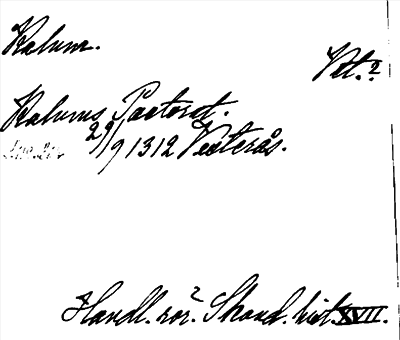 Kalum.
Vet.?
Kalums Pastorat.
29/9 1312 Vesterås.
Handl. rör? Skand. hist. XVII.